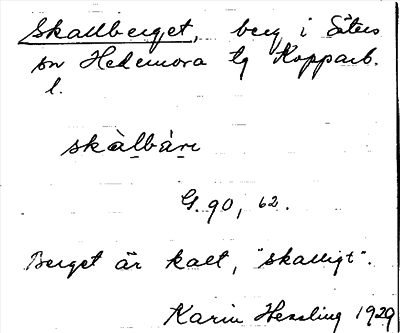 Skallberget, berg i Säters
sn Hedemora tg Kopparb.
l.
skàlbàre
G. 90, 62.
Berget är kalt, "skalligt".
Karin Hessling 1929